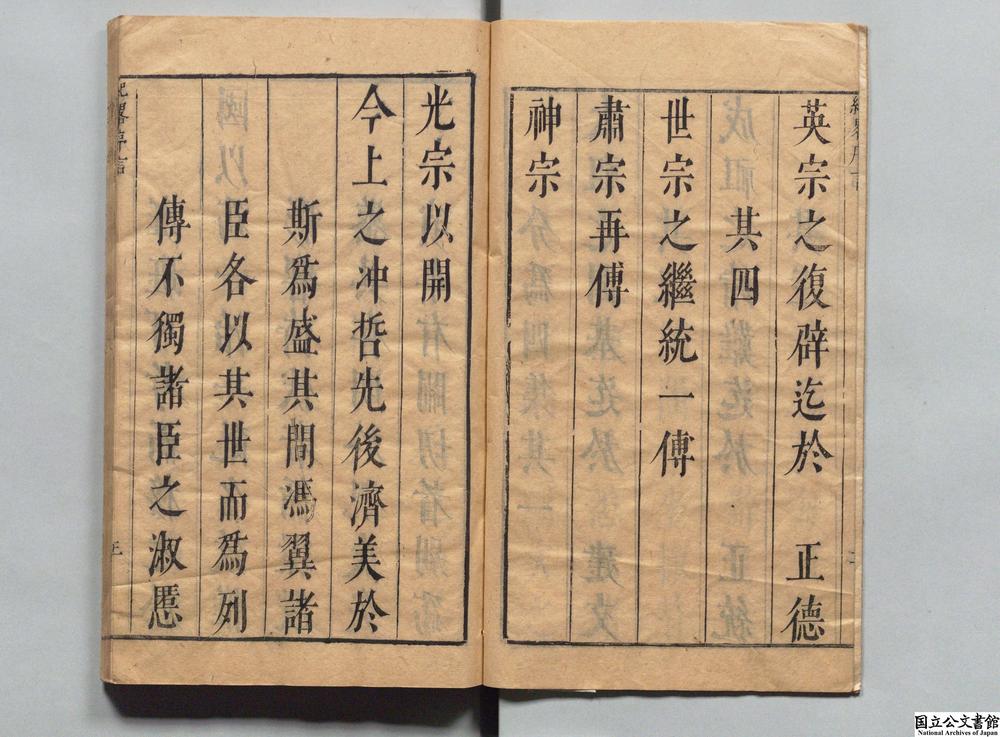 英宗之復辟迄於 正德
其四
世宗之繼統一傳
肅宗再傳
神宗
光宗以開
今上之冲哲先後濟美於
斯爲盛其間馮翼諸
臣各以其世而爲列
傳不獨諸臣之淑慝
国立公文書館
National Archives of Japan